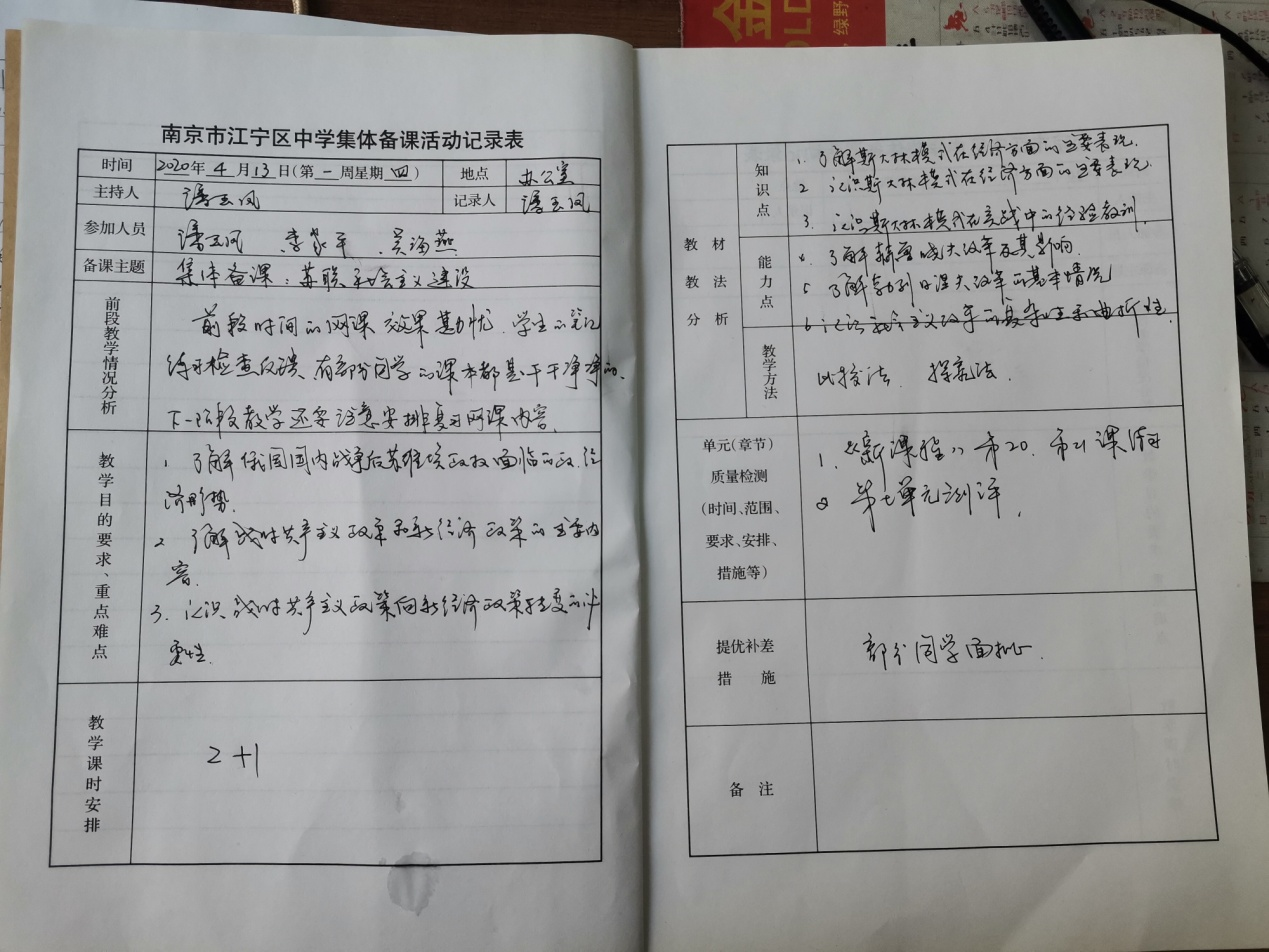 金
OLD
绿野
南京市江宁区中学集体备课活动记录表
时间 2020年 4 月 13 日(第 一 周星期 四) 地点 办公室
主持人 潘玉凤 记录人 潘玉凤
参加人员 潘玉凤 李家平 吴海燕
备课主题 集体备课：苏联社会主义建设
前段教学情况分析
前段时间的网课效果堪忧.学生的笔记
练习检查反馈.有部分同学的课本都是干干净净的.
下一阶段教学还要注意安排复习网课内容.
教学目的要求、重点难点
1. 了解俄国国内战争后苏维埃政权面临的政.经
济形势.
2. 了解战时共产主义政策和新经济政策的主要内
容.
3. 认识战时共产主义政策向新经济政策转变的必
要性.
教学课时安排
2+1
教材
教法
分析
知识点
1. 了解斯大林模式在经济方面的主要表现.
2 认识斯大林模式在经济方面的主要表现.
3. 认识斯大林模式在实践中的经验教训.
能力点
4. 了解赫鲁晓夫改革及其影响.
5 了解勃列日涅夫改革的基本情况
6 认识社会主义改革的复杂性和曲折性.
教学方法
比较法. 探究法.
单元(章节)
质量检测
(时间、范围、
要求、安排、
措施等)
1. 《新课程》第20.第21课练习
2 第七单元测评.
提优补差
措 施
部分同学面批.
备 注